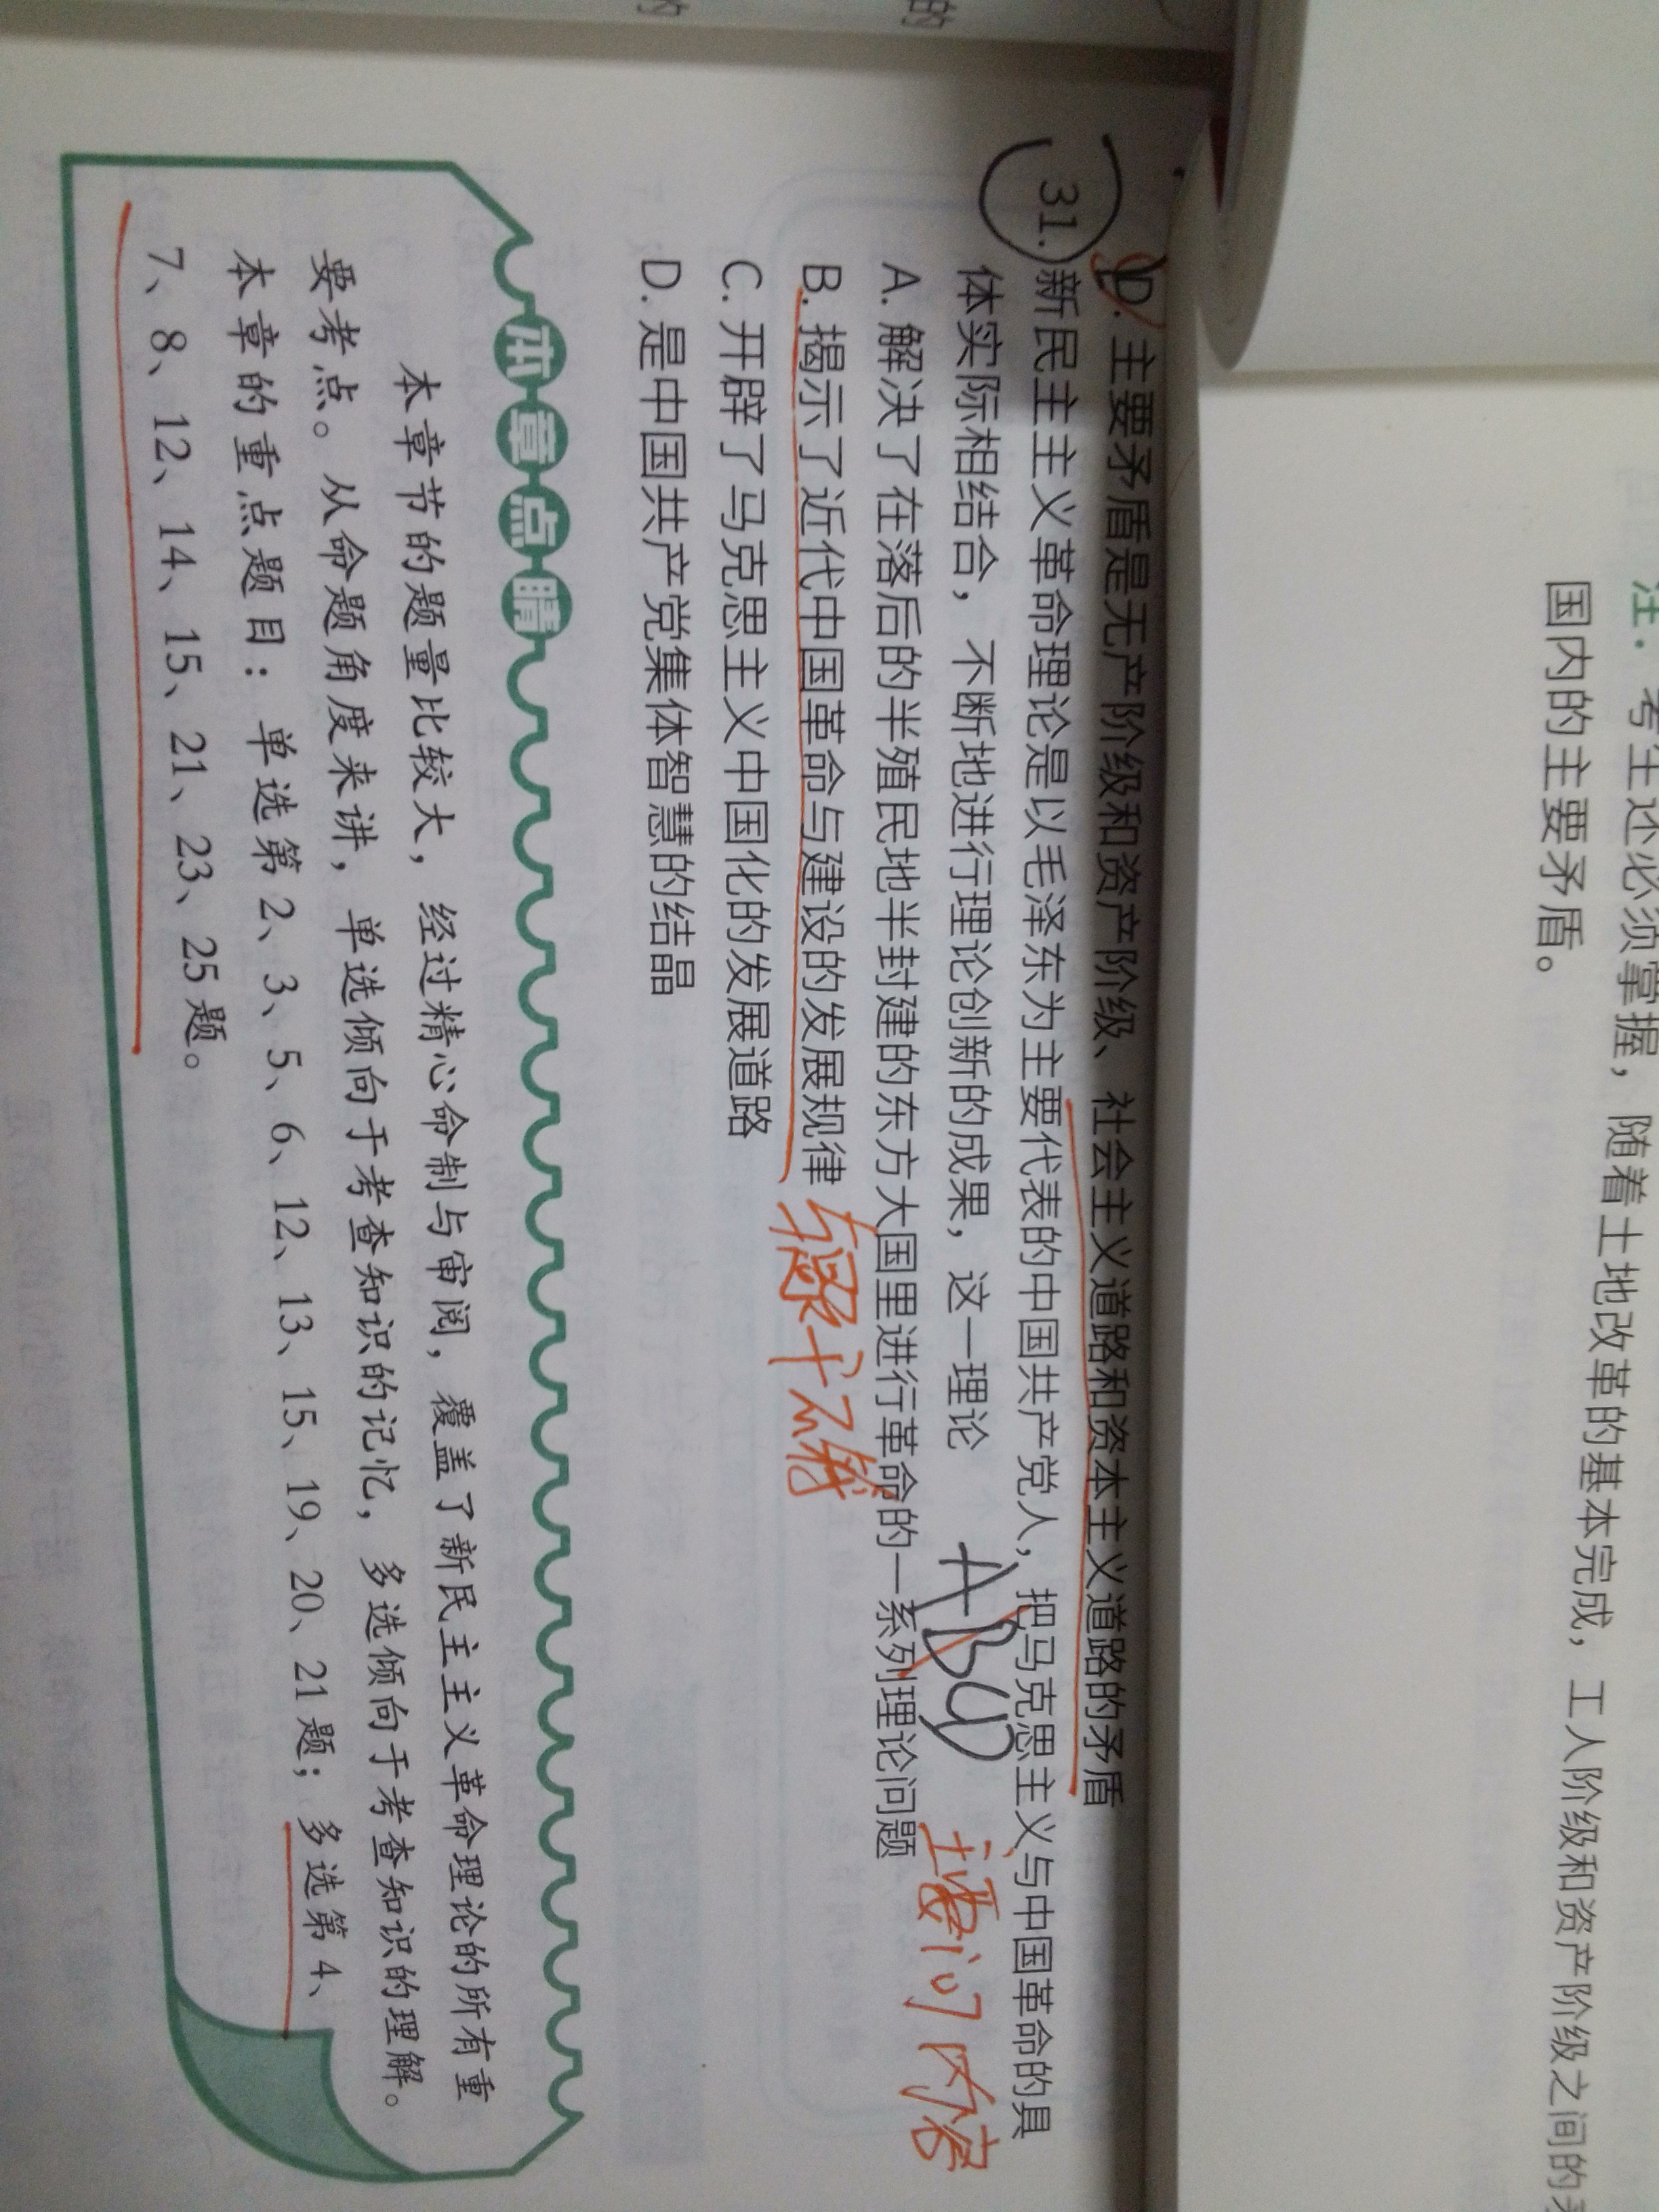 注：考生还必须掌握，随着土地改革的基本完成，工人阶级和资产阶级之间的
国内的主要矛盾。
D. 主要矛盾是无产阶级和资产阶级、社会主义道路和资本主义道路的矛盾
31. 新民主主义革命理论是以毛泽东为主要代表的中国共产党人，把马克思主义与中国革命的具
体实际相结合，不断地进行理论创新的成果，这一理论
主要问内容
A. 解决了在落后的半殖民地半封建的东方大国里进行革命的一系列理论问题
B. 揭示了近代中国革命与建设的发展规律
C. 开辟了马克思主义中国化的发展道路
D. 是中国共产党集体智慧的结晶
本章点睛
本章节的题量比较大，经过精心命制与审阅，覆盖了新民主主义革命理论的所有重
要考点。从命题角度来讲，单选倾向于考查知识的记忆，多选倾向于考查知识的理解。
本章的重点题目：单选第 2、3、5、6、12、13、15、19、20、21 题；多选第 4、
7、8、12、14、15、21、23、25 题。